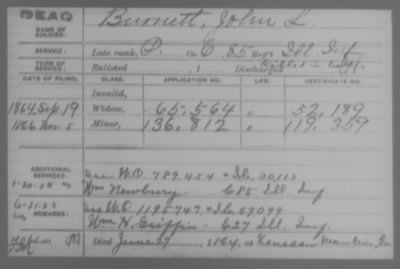 DEAD
NAME OF SOLDIER: Burnett, John L
SERVICE: Late rank, P. Co. C, 85 Reg't Ill Inf
TERM OF SERVICE: Enlisted , 1 Discharged
DATE OF FILING. CLASS. APPLICATION NO. LAW. CERTIFICATE NO.
Invalid,
1864 Sep. 19 Widow, 65,564 " 52,189
1866 Nov. 5 Minor, 136,812 " 119,359
ADDITIONAL SERVICES: See W.O. 789.454 + 30113
Wm Newbury C 85 Ill Inf
6-21-23 See W.O. 1195747, + 59,099
REMARKS: Wm. H. Griffin C 27 Ill. Inf.
Died June 27, 1864, at Kenesaw Mountain, Ga